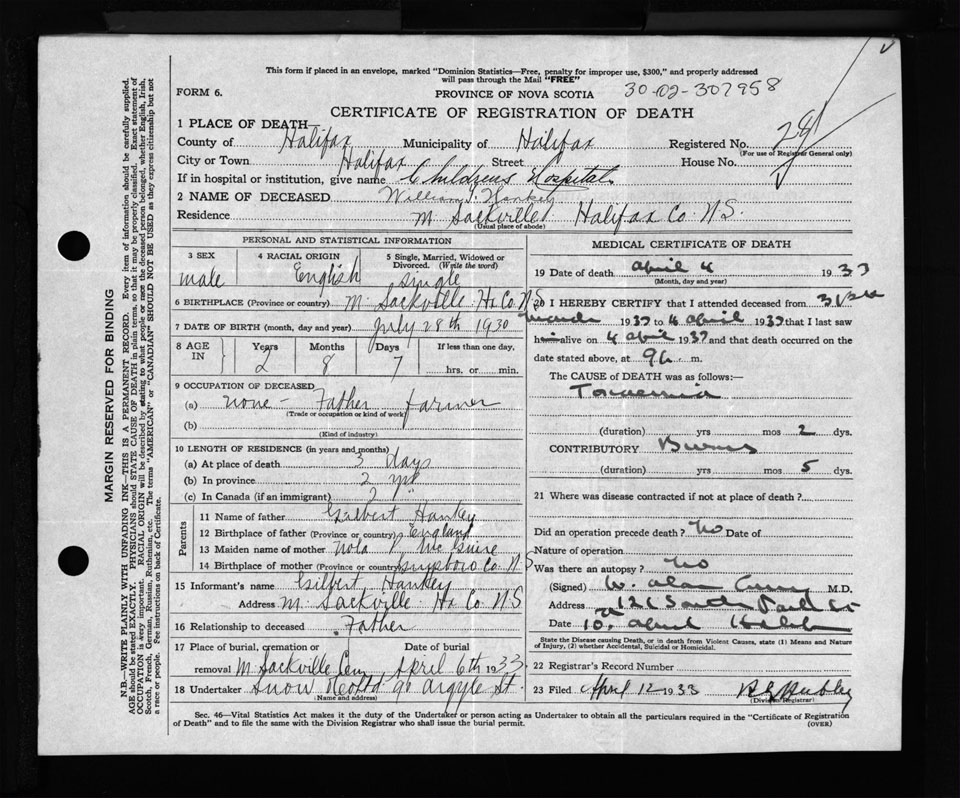 This form if placed in an envelope, marked "Dominion Statistics—Free, penalty for improper use, $300," and properly addressed
will pass through the Mail "FREE"
FORM 6.
PROVINCE OF NOVA SCOTIA
30-02-307958
CERTIFICATE OF REGISTRATION OF DEATH
1 PLACE OF DEATH—
County of Halifax Municipality of Halifax Registered No.
(For use of Registrar General only)
City or Town Halifax Street House No.
If in hospital or institution, give name Childrens Hospital
2 NAME OF DECEASED William Hankey
Residence M. Sackville Halifax Co. N.S.
(Usual place of abode)
PERSONAL AND STATISTICAL INFORMATION
3 SEX
male
4 RACIAL ORIGIN
English
5 Single, Married, Widowed or
Divorced. (Write the word)
Single
6 BIRTHPLACE (Province or country) M. Sackville Hx Co. N.S.
7 DATE OF BIRTH (month, day and year) July 28th 1930
8 AGE IN
Years Months Days If less than one day,
2 8 7
hrs. or min.
9 OCCUPATION OF DECEASED
(a) none - Father farmer
(Trade or occupation or kind of work)
(b)
(Kind of industry)
10 LENGTH OF RESIDENCE (in years and months)
(a) At place of death 3 days
(b) In province 2 yrs
(c) In Canada (if an immigrant) 2 "
Parents
11 Name of father Gilbert Hankey
12 Birthplace of father (Province or country) England
13 Maiden name of mother Nola McGuire
14 Birthplace of mother (Province or country) Guysboro Co. N.S
15 Informant's name Gilbert Hankey
Address M. Sackville Hx Co N.S
16 Relationship to deceased Father
17 Place of burial, cremation or Date of burial
removal M. Sackville Cem April 6th 1933
18 Undertaker Snow & Co Ltd 90 Argyle St.
(Name and address)
MEDICAL CERTIFICATE OF DEATH
19 Date of death April 4 1933
(Month, day and year)
20 I HEREBY CERTIFY that I attended deceased from 31st
March 1933 to 4 April 1933 that I last saw
him alive on 4 April 1933 and that death occurred on the
date stated above, at 9 m.
The CAUSE of DEATH was as follows:—
Toxaemia
(duration) yrs mos 2 dys.
CONTRIBUTORY Burns
(duration) yrs mos 5 dys.
21 Where was disease contracted if not at place of death?
Did an operation precede death? No Date of
Nature of operation
Was there an autopsy? No
(Signed) W. Alan Curry M.D.
Address South Park St
Date 10 April
State the Disease causing Death, or in death from Violent Causes, state (1) Means and Nature
of Injury, (2) whether Accidental, Suicidal or Homicidal.
22 Registrar's Record Number
23 Filed April 12 1933
(Division Registrar)
Sec. 46—Vital Statistics Act makes it the duty of the Undertaker or person acting as Undertaker to obtain all the particulars required in the "Certificate of Registration
of Death" and to file the same with the Division Registrar who shall issue the burial permit. (OVER)
MARGIN RESERVED FOR BINDING
N.B.—WRITE PLAINLY WITH UNFADING INK—THIS IS A PERMANENT RECORD. Every item of information should be carefully supplied.
AGE should be stated EXACTLY. PHYSICIANS should STATE CAUSE OF DEATH in plain terms, so that it may be properly classified. Exact statement of
OCCUPATION is very important. RACIAL ORIGIN will be described by stating to what people or race the deceased person belonged, whether English, Irish,
Scotch, French, German, Russian, Ruthenian, etc. The terms "AMERICAN" or "CANADIAN" SHOULD NOT BE USED as they express citizenship but not
a race or people. See instructions on back of Certificate.